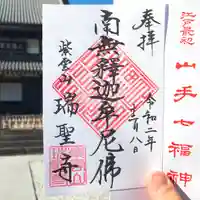 奉拝
令和二年
十二月八日
南無釋迦牟尼佛
紫雲山
瑞聖寺
江戸最初
山手七福神